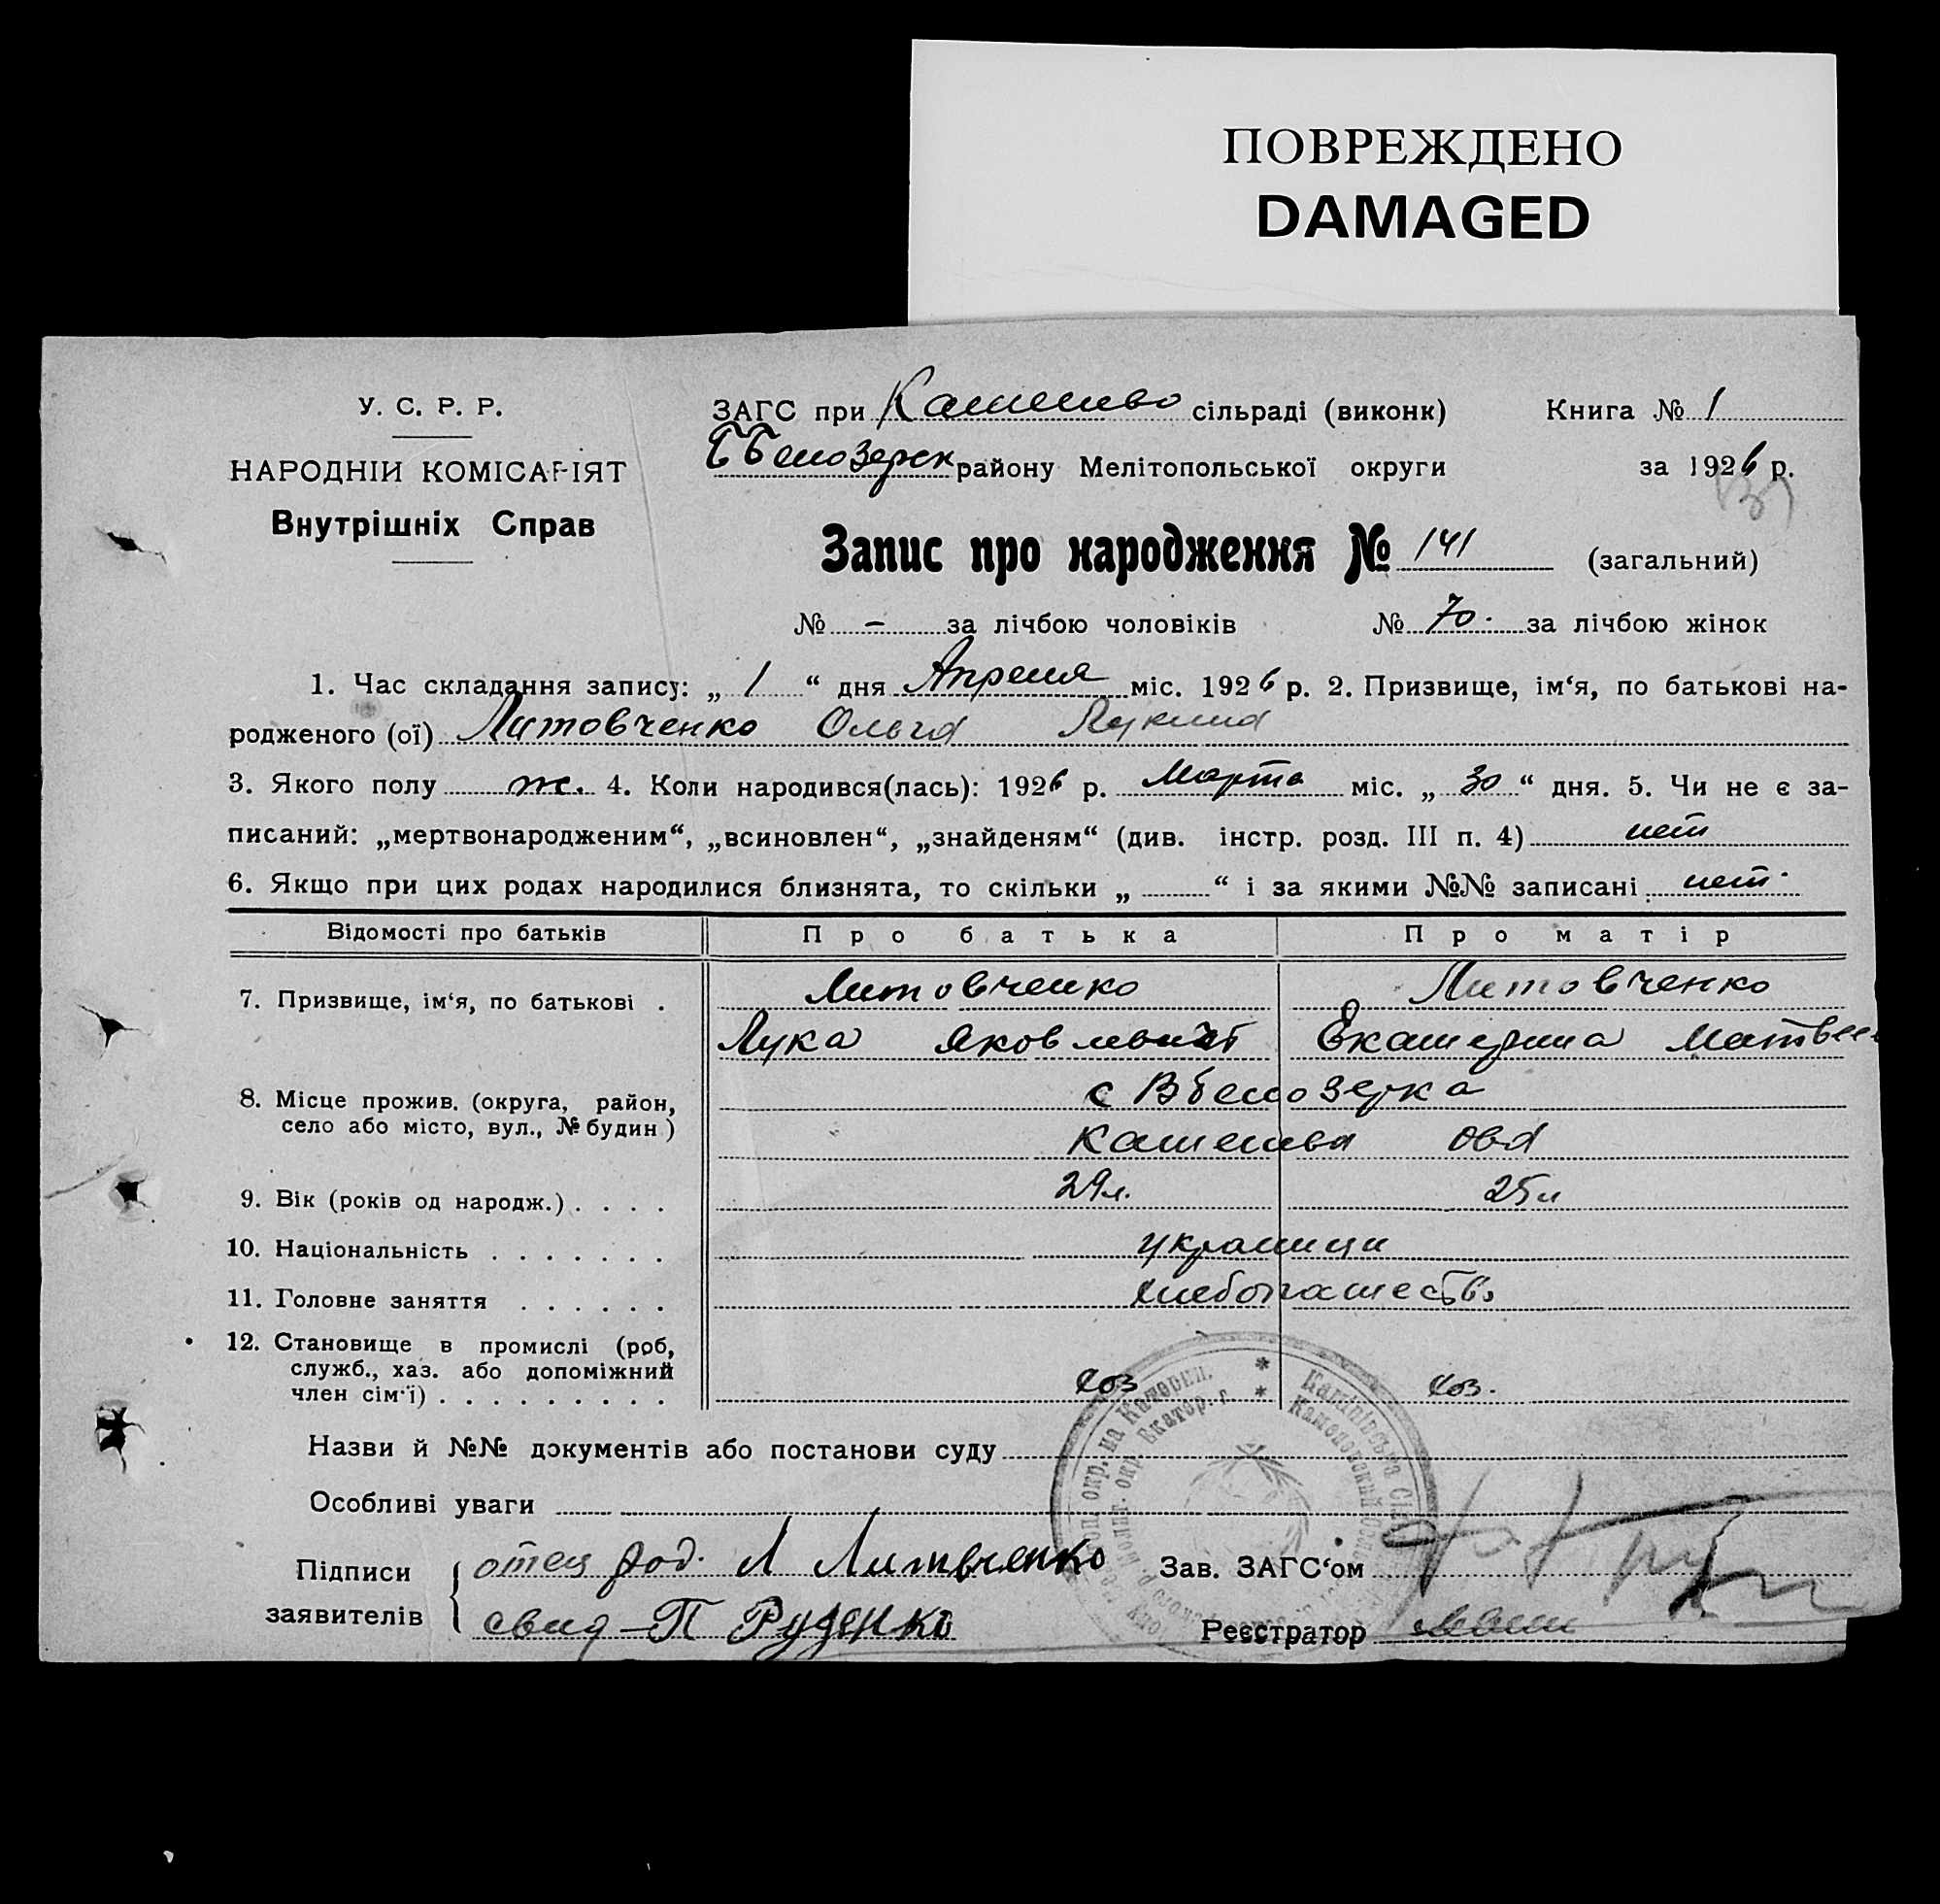 ПОВРЕЖДЕНО
DAMAGED
У. С. Р. Р.
НАРОДНІЙ КОМІСАРІЯТ
Внутрішніх Справ
ЗАГС при сільраді (виконк) Книга № 1
району Мелітопольської округи за 1926 р.
Запис про народження № 141 (загальний)
№ – за лічбою чоловіків № 70. за лічбою жінок
1. Час складання запису: „ 1 “ дня Апреля міс. 1926 р. 2. Призвище, ім‘я, по батькові на-
родженого (ої) Литовченко Ольга Лукина
3. Якого полу ж. 4. Коли народився(лась): 1926 р. Марта міс. „ 30 “ дня. 5. Чи не є за-
писаний: „мертвонародженим“, „всиновлен“, „знайденям“ (див. інстр. розд. III п. 4) нет
6. Якщо при цих родах народилися близнята, то скільки „ “ і за якими №№ записані нет.
Відомості про батьків Про батька Про матір
7. Призвище, ім‘я, по батькові . Литовченко Литовченко
Лука Яковлевич Екатерина
8. Місце прожив. (округа, район, с Вбелозерка
село або місто, вул., № будин)
9. Вік (років од народж.) . . . . 29л. 25л
10. Національність . . . . . . . украинци
11. Головне заняття . . . . . . хлебопашество
12. Становище в промислі (роб,
служб., хаз. або допоміжний
член сім‘ї) . . . . . . . . . хоз хоз.
Назви й №№ документів або постанови суду
Особливі уваги
Підписи отец род. Л Литвченко Зав. ЗАГС‘ом
заявителів свид – П Руденко Реєстратор